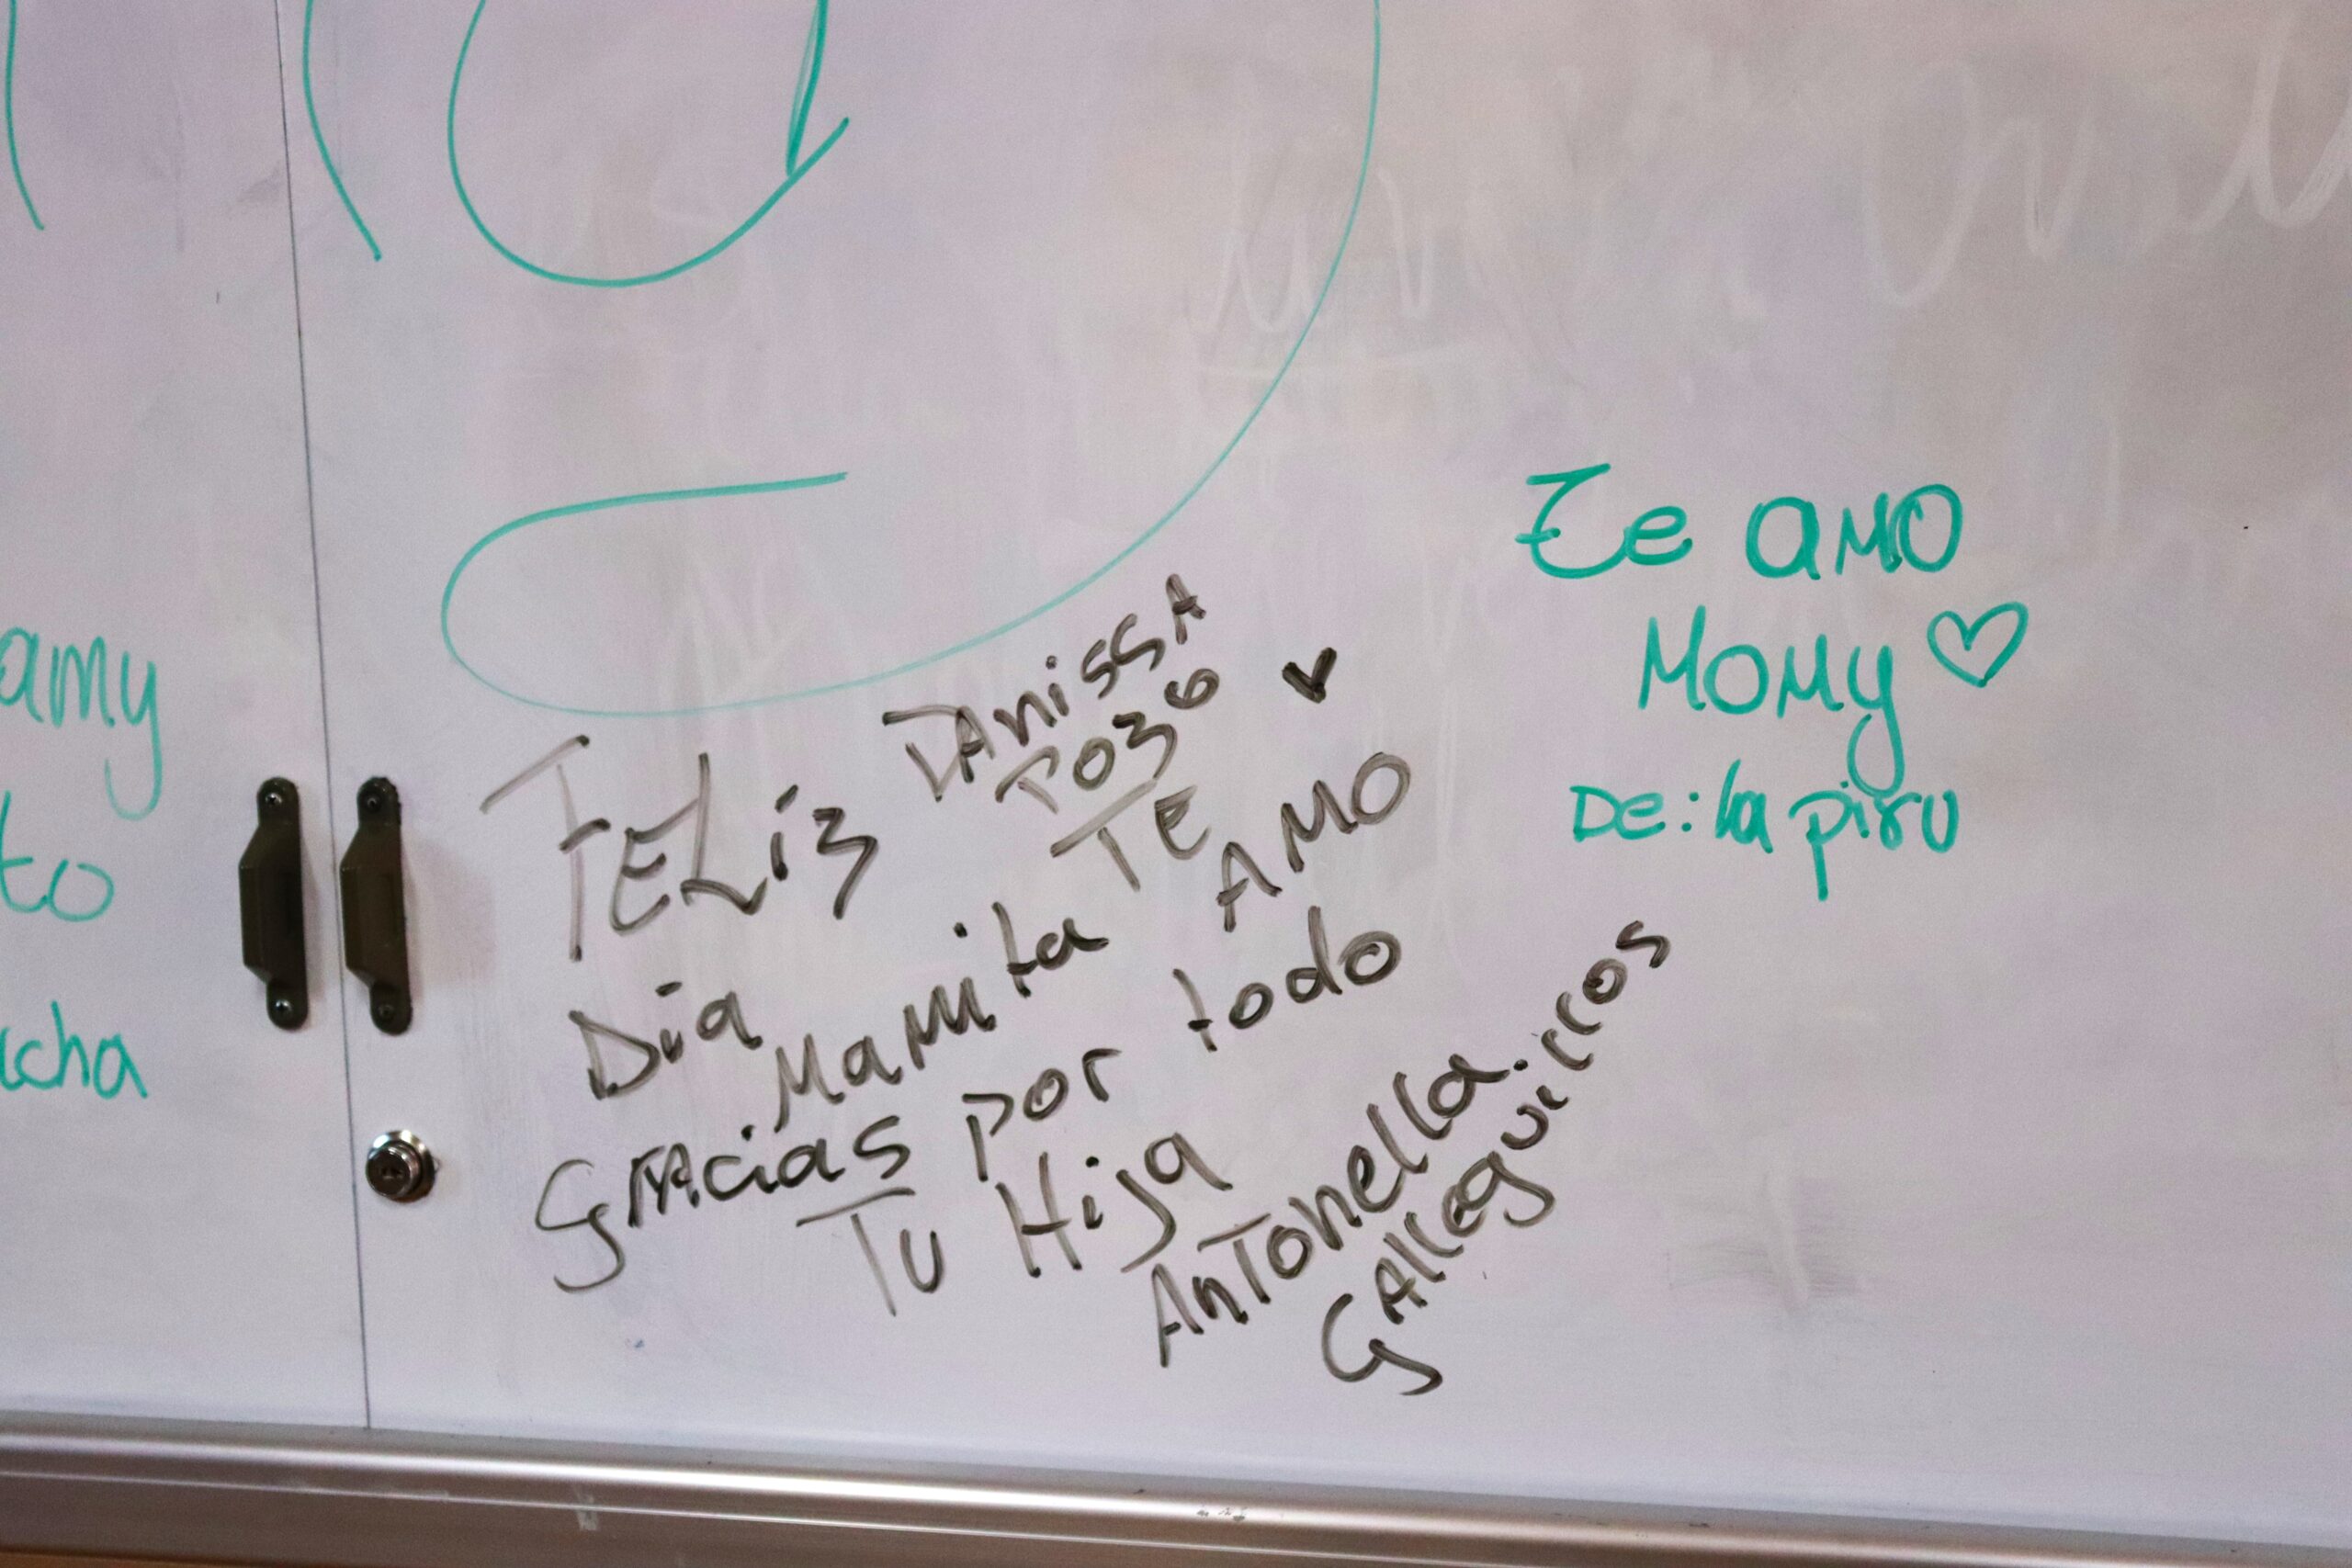 amy
to
cha
DAnissA
POZO
FELiz
TE
AMO
Día
Mamita
Gracias por todo
Tu Hija
AnTonella.
GAlleguillos
Te amo
Momy ♡
De: la piru